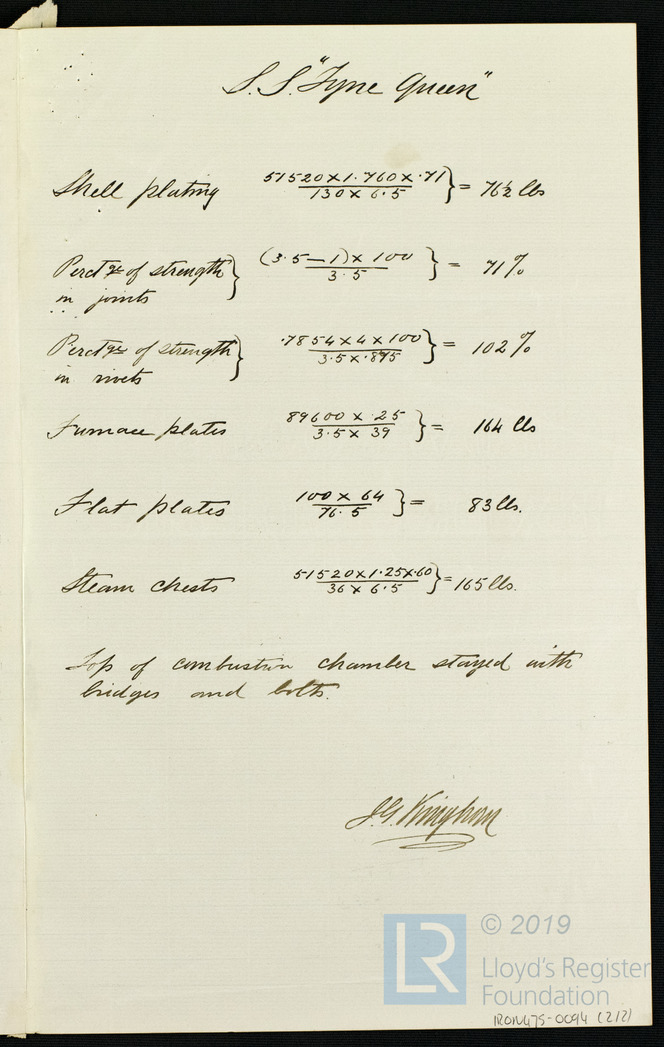 S.S. "Tyne Queen"
Shell plating 51520 x 1.760 x .71 / 130 x 6.5 } = 76½ lbs
Perctge of strength } (3.5 — 1) x 100 / 3.5 } = 71 %
in joints
Perctge of strength } .7854 x 4 x 100 / 3.5 x .875 } = 102 %
in rivets
Furnace plates 89600 x .25 / 3.5 x 39 } = 164 lbs
Flat plates 100 x 64 / 76.5 } = 83 lbs.
Steam chests 51520 x 1.25 x .60 / 36 x 6.5 } = 165 lbs.
Top of combustion chamber stayed with
bridges and bolts.
J.G. Kinghorn
LR
© 2019
Lloyd's Register
Foundation
IRON475-0094 (2/2)